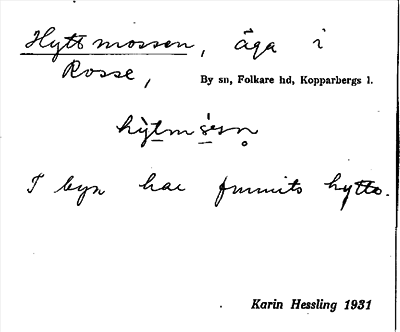 Hyttmossen, äga i
Rosse, By sn, Folkare hd, Kopparbergs l.
I byn har funnits hytta.
Karin Hessling 1931